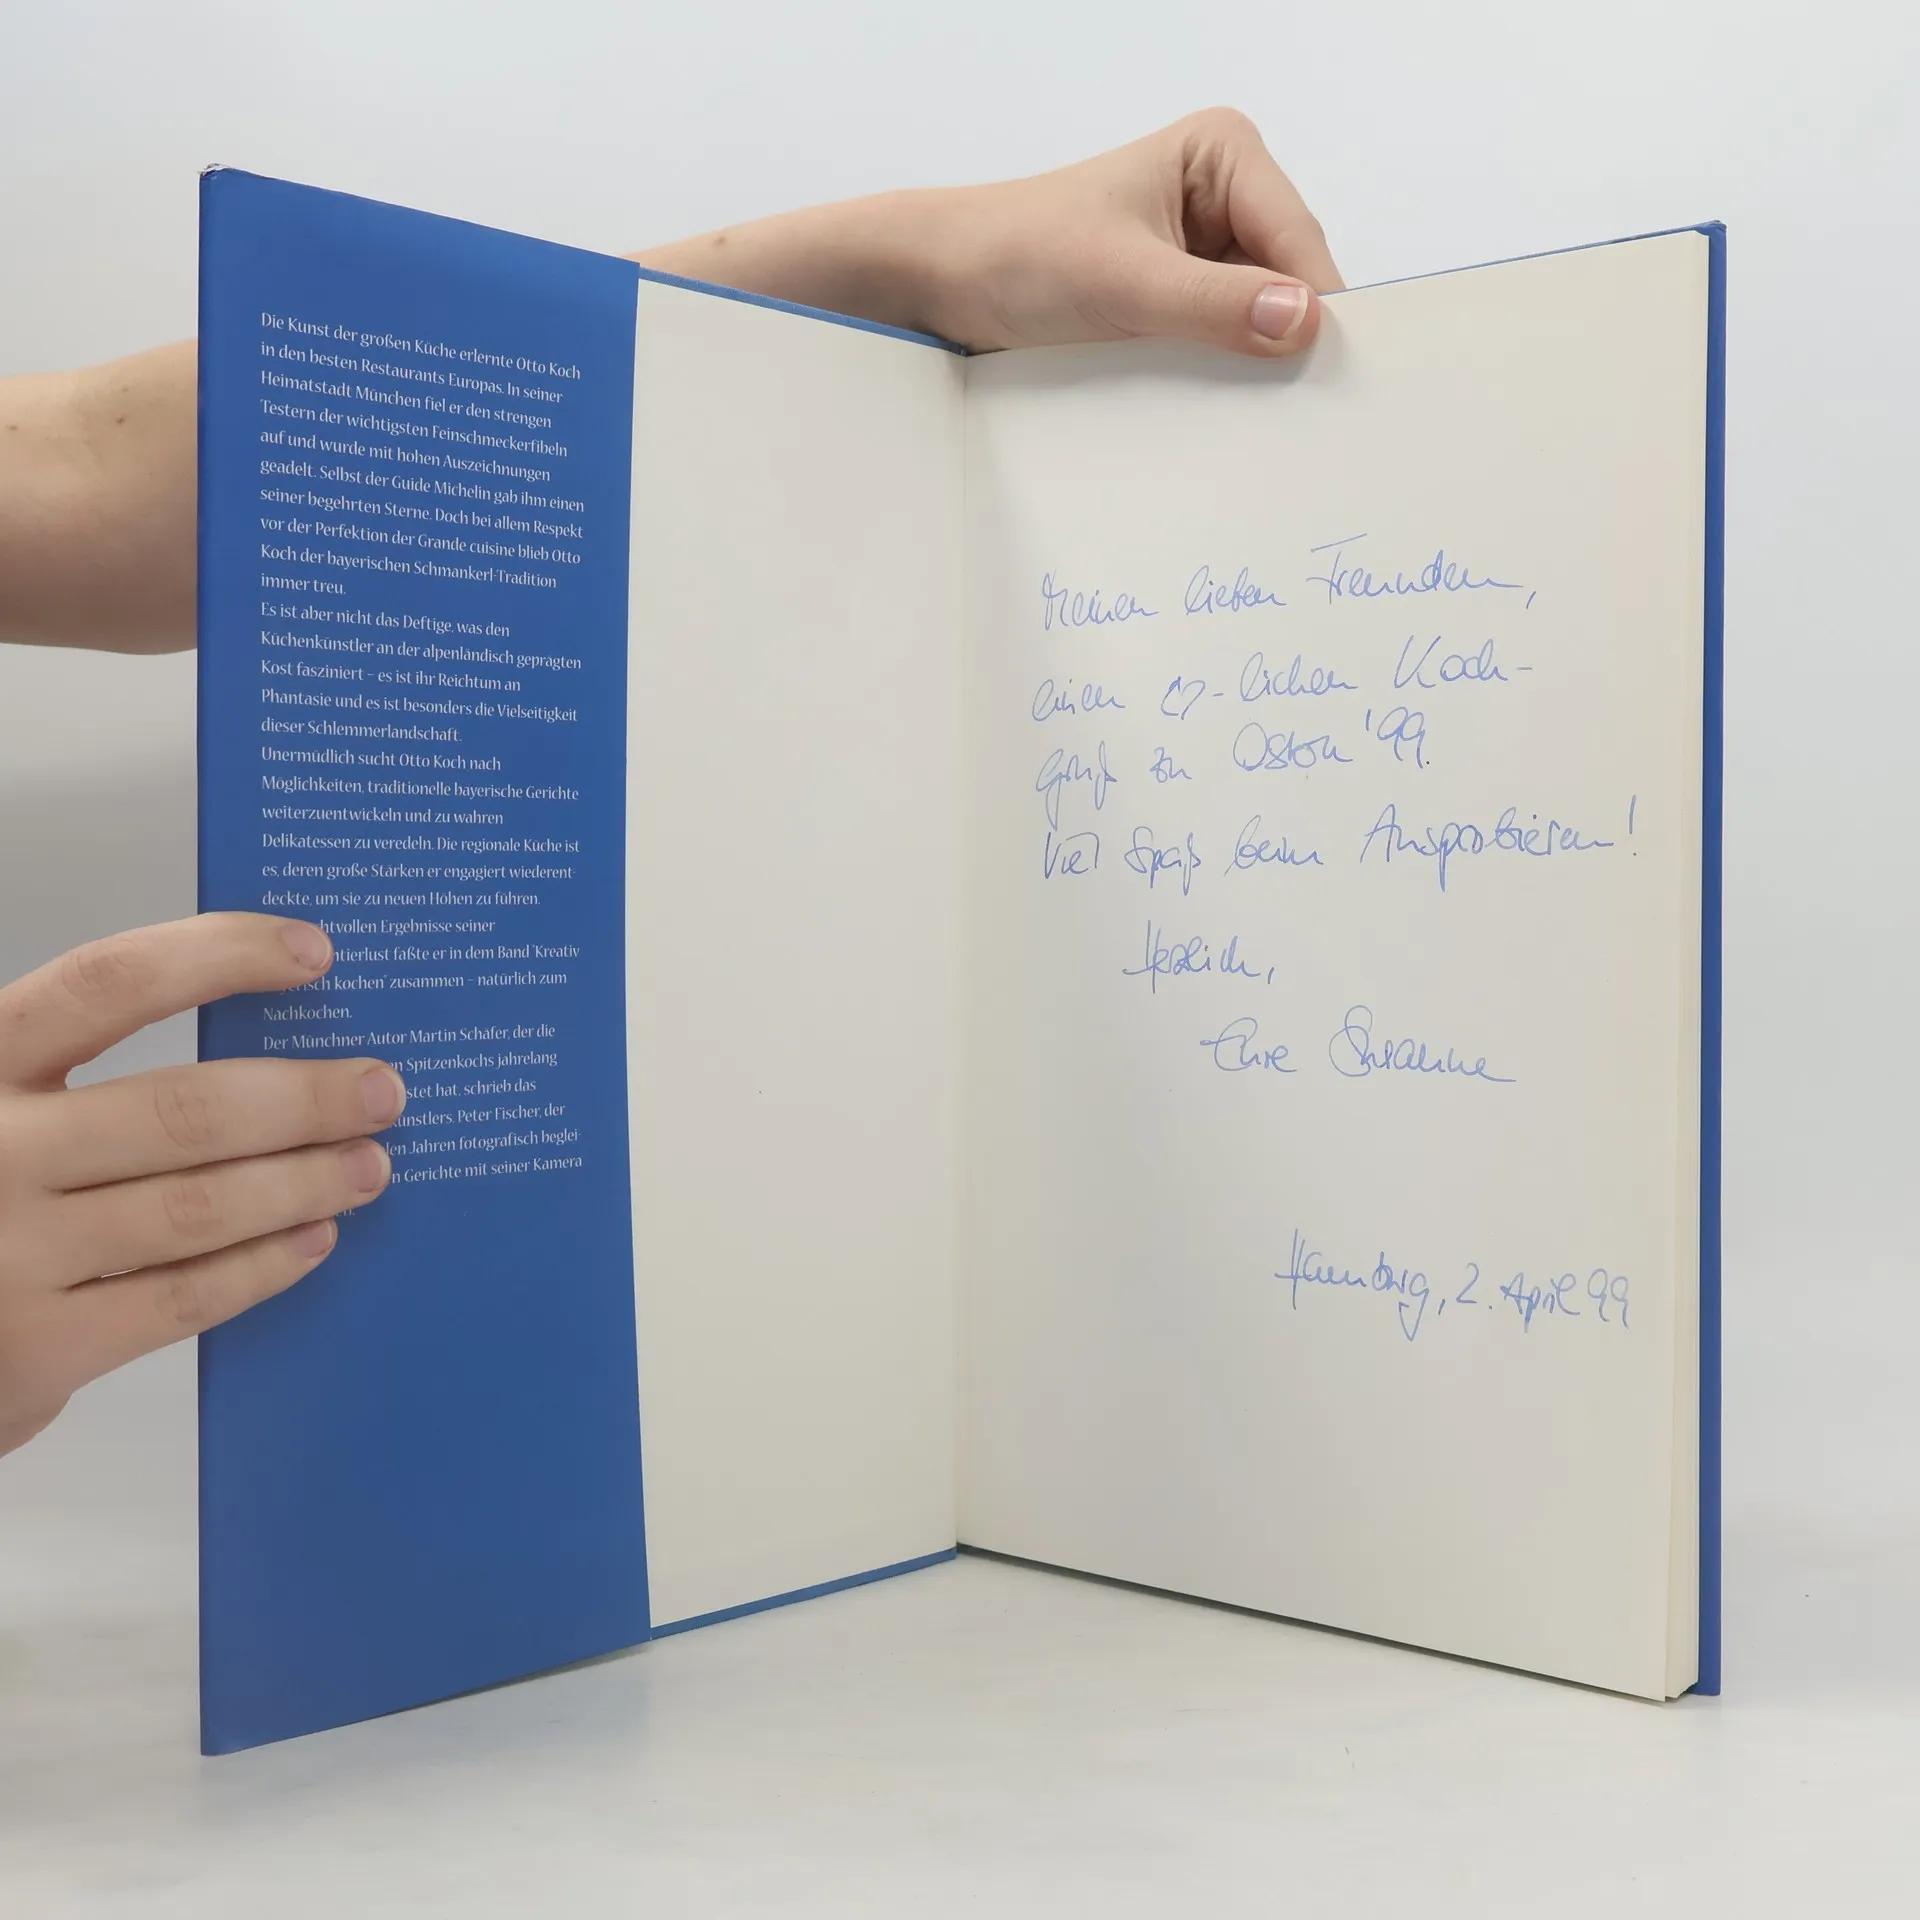 Die Kunst der großen Küche erlernte Otto Koch
in den besten Restaurants Europas. In seiner
Heimatstadt München fiel er den strengen
Testern der wichtigsten Feinschmeckerfibeln
auf und wurde mit hohen Auszeichnungen
geadelt. Selbst der Guide Michelin gab ihm einen
seiner begehrten Sterne. Doch bei allem Respekt
vor der Perfektion der Grande cuisine blieb Otto
Koch der bayerischen Schmankerl-Tradition
immer treu.
Es ist aber nicht das Deftige, was den
Küchenkünstler an der alpenländisch geprägten
Kost fasziniert – es ist ihr Reichtum an
Phantasie und es ist besonders die Vielseitigkeit
dieser Schlemmerlandschaft.
Unermüdlich sucht Otto Koch nach
Möglichkeiten, traditionelle bayerische Gerichte
weiterzuentwickeln und zu wahren
Delikatessen zu veredeln. Die regionale Küche ist
es, deren große Stärken er engagiert wiederent-
deckte, um sie zu neuen Höhen zu führen.
Ergebnisse seiner
faßte er in dem Band "Kreativ
kochen" zusammen – natürlich zum
Nachkochen.
Der Münchner Autor Martin Schäfer, der die
Spitzenkochs jahrelang
hat, schrieb das
Peter Fischer, der
Jahren fotografisch beglei-
Gerichte mit seiner Kamera
Meinen lieben Freunden,
einen ♡-lichen Koch-
gruß zu Ostern '99.
Viel Spaß beim Ausprobieren!
Herzlich,
Eure Susanne
Hamburg, 2. April 99